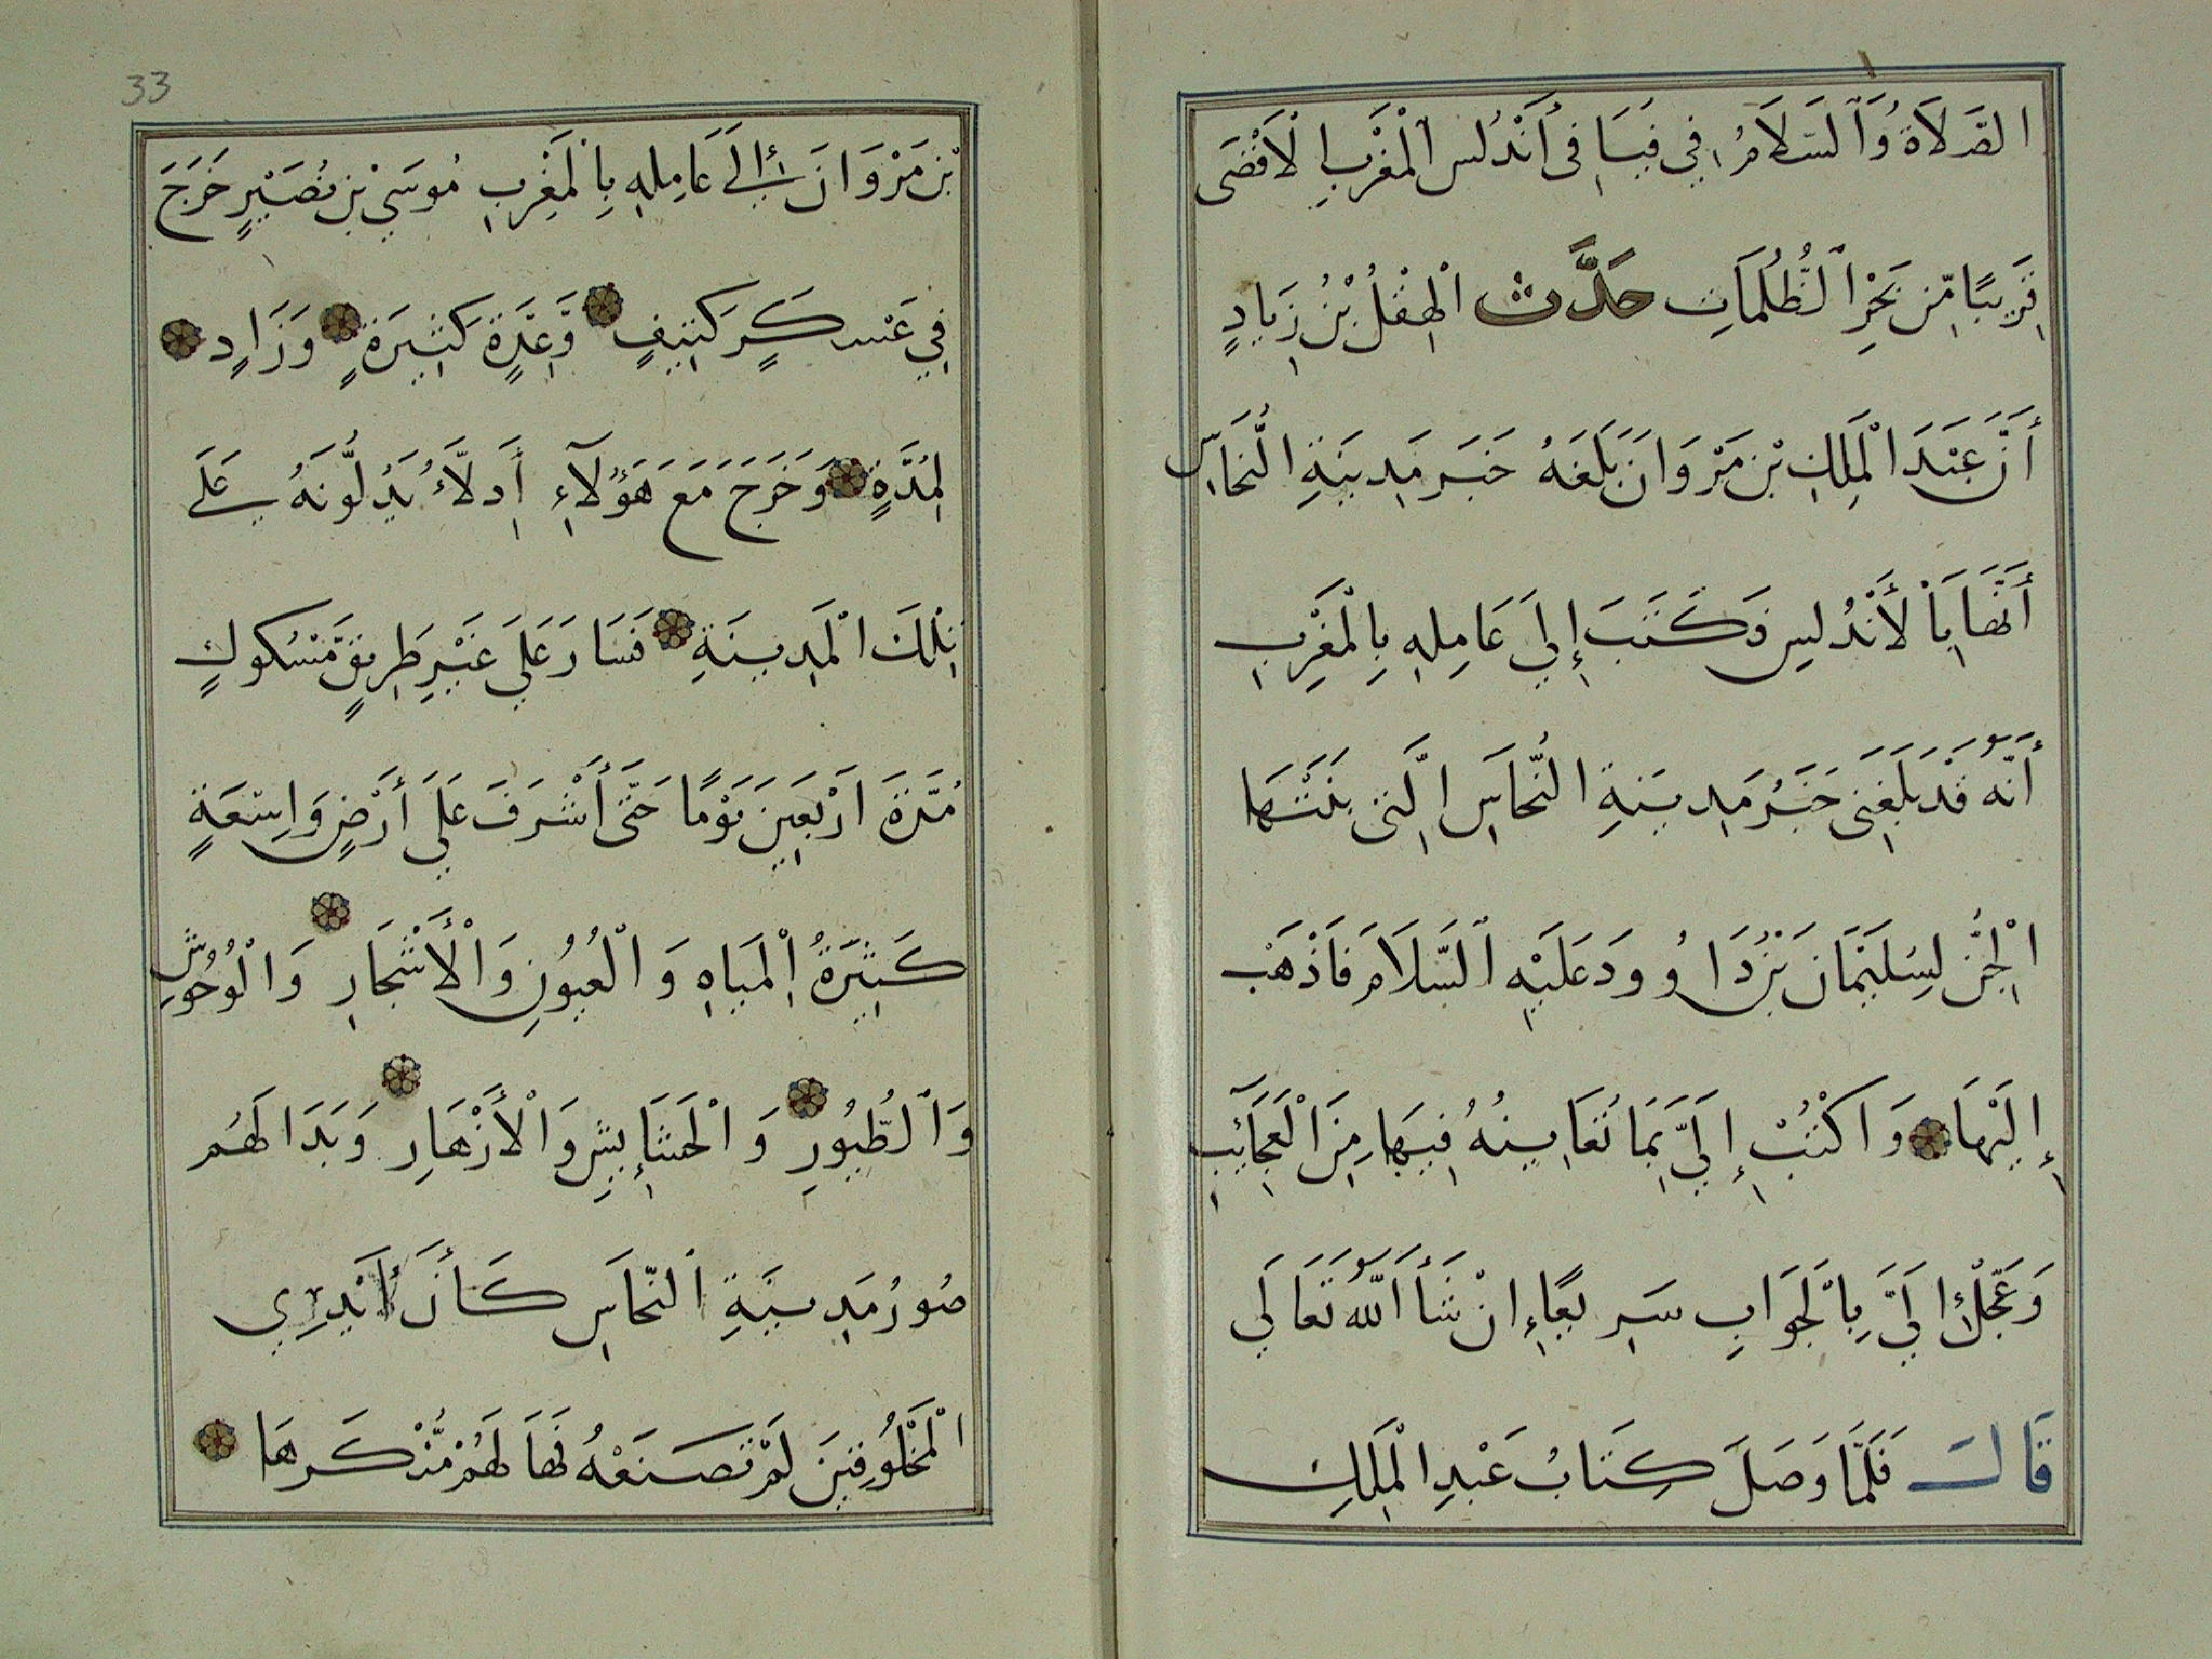 الصَّلَاةُ وَالسَّلَامُ فِي فَيَافِي أَنْدُلُس الْمَغْرِبِ الْأَقْصَى
قَرِيبًا مِّن بَحْرِ الظُّلُمَاتِ حَدَّثَ الْهِقْلُ بْنُ زِيَادٍ
أَنَّ عَبْدَ الْمَلِكِ بْنِ مَرْوَانَ بَلَغَهُ خَبَر مَدِينَةِ النُّحَاسِ
أَنَّهَا بِالْأَنْدُلِسِ فَكَتَبَ إِلَى عَامِلِهِ بِالْمَغْرِبِ
أَنَّهُ قَدْ بَلَغَنِى خَبَرُ مَدِينَةِ النُّحَاسِ الَّتِى بَنَتْهَا
الْجِنُّ لِسُلَيْمَانَ بْنِ دَاوُودَ عَلَيْهِ السَّلَامَ فَاذْهَبْ
إِلَيْهَا وَاكْتُبْ إِلَيَّ بِمَا تُعَايِنُهُ فِيهَا مِنَ الْعَجَائِبِ
وَعَجِّلْ إِلَيَّ بِالْجَوَابِ سَرِيعًا إِنْ شَأَ اللَّهُ تَعَالَي
قَالَ فَلَمَّا وَصَلَ كِتَابُ عَبْدِ الْمَلِكِ
بْنِ مَرْوَانَ إِلَي عَامِلِهِ بِالْمَغْرِبِ مُوسَي بْنِ نُصَيْرٍ خَرَجَ
فِي عَسْكَرٍ كَثِيفٍ وَّعِدَّةٍ كَثِيرَةٍ وَزَادٍ
لِمُدَّةٍ وَخَرَجَ مَعَ هَؤُلَآءِ أَدِلَّاءُ يَدُلُّونَهُ عَلَي
تِلْكَ الْمَدِينَةِ فَسَارَ عَلَي غَيْرِ طَرِيقٍ مَّسْكُوكٍ
مُدَّةَ ارْبَعِينَ يَوْمًا حَتَّى أَشْرَفَ عَلَي أَرْضٍ وَاسِعَةٍ
كَثِيرَةُ الْمِيَاهِ وَالْعُيُونِ وَالْأَشْجَارِ وَالْوُحُوشِ
وَالطُّيُورِ وَالْحَشَائِشِ وَالْأَزْهَارِ وَبَدَا لَهُم
صُورُ مَدِينَةِ النّحَاسِ كَأَنَ أَيْدِي
الْمَخْلُوقِينَ لَمْ تَصْنَعْهُ فَهَا لَهُمْ مَنْظَرهَا